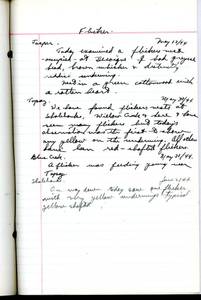 Flicker.
Torrey. May 13/44
Today examined a flicker nest
occupied at
bird, brown whisker & distinctly
reddish underwing.
Nest in a green cottonwood with
a rotten heart.
Topaz May 20/44
We have found flickers nests at
Shobhake, Willow Creek & here & have
seen many flickers but today's
observation was the first to show
any yellow on the underwing. All other
have been red-shafted flickers.
Blue Creek. May 21/44.
A flicker was feeding young near
Topaz
June 2/44
On way down today saw one flicker
with very yellow underwings typical
yellow shafted.